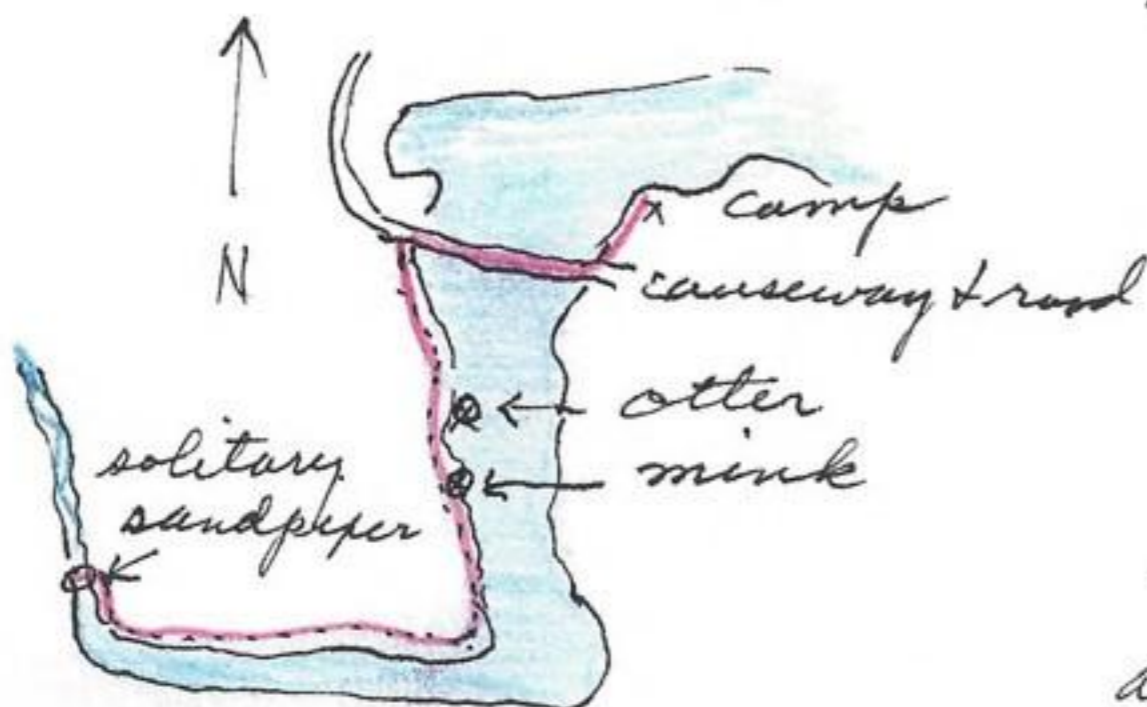 camp
N
causeway + road
otter
mink
solitary
sandpiper
a